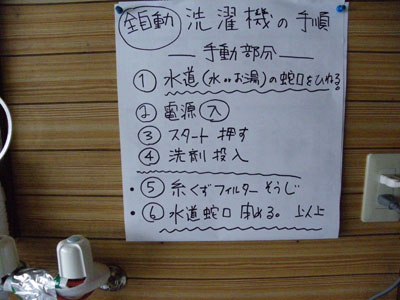 全自動 洗濯機の手順
手動部分
① 水道(水or お湯)の蛇口をひねる!
② 電源 入
③ スタート 押す
④ 洗剤 投入
・⑤ 糸くずフィルター そうじ
・⑥ 水道蛇口 閉める。 以上